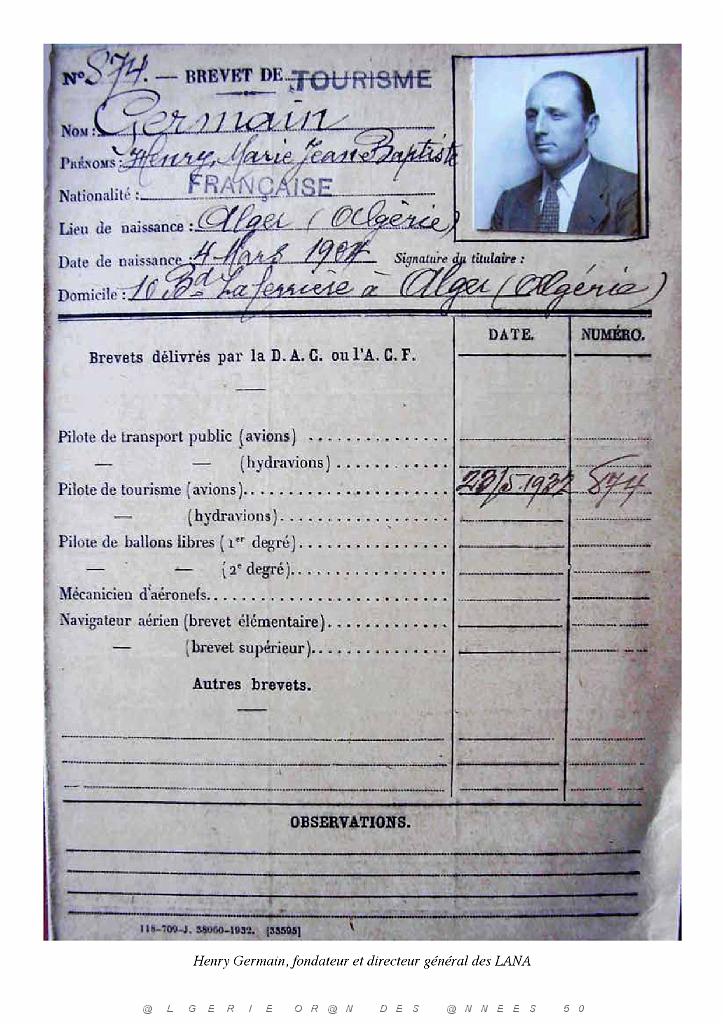 N° 874. — BREVET DE TOURISME
NOM : Germain
PRÉNOMS : Henry, Marie Jean-Baptiste
Nationalité : FRANÇAISE
Lieu de naissance : Alger (Algérie)
Date de naissance : 4 Mars 1904 Signature du titulaire :
Domicile : 10 Bd Laferrière à Alger (Algérie)
DATE. NUMÉRO.
Brevets délivrés par la D. A. C. ou l'A. C. F.
Pilote de transport public (avions)
— — (hydravions)
Pilote de tourisme (avions) 23/5 1932 874
— (hydravions)
Pilote de ballons libres (1er degré)
— — (2e degré)
Mécanicien d'aéronefs
Navigateur aérien (brevet élémentaire)
— (brevet supérieur)
Autres brevets.
OBSERVATIONS.
118-709-J. 38060-1932. [33595]
Henry Germain, fondateur et directeur général des LANA
@ L G E R I E O R @ N D E S @ N N E E S 5 0